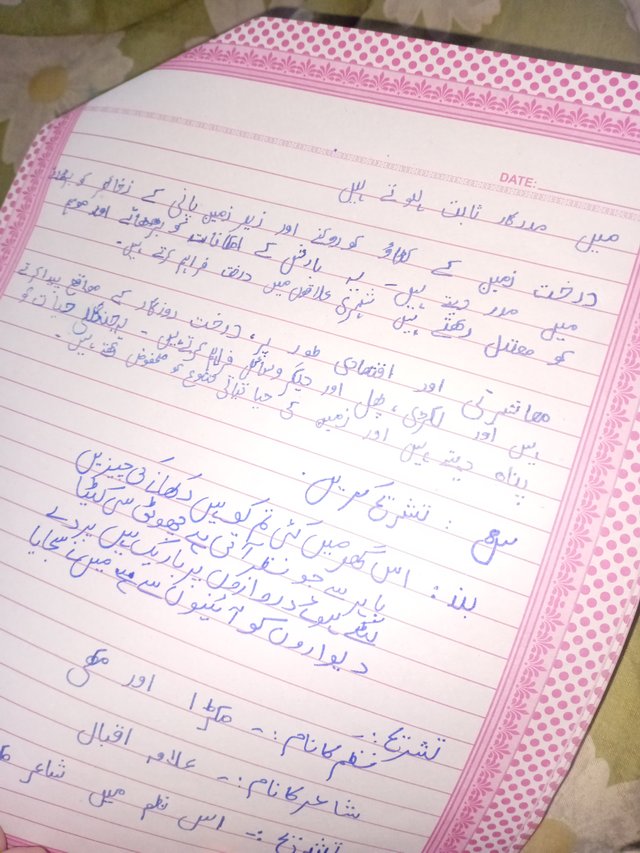 DATE:
میں مددگار ثابت ہوتے ہیں
درخت زمین کے کٹاؤ کو روکنے اور زیر زمین پانی کے ذخائر کو
میں مدد دیتے ہیں۔ یہ بارش کے امکانات کو بڑھاتے اور موسم
کو معتدل رکھتے ہیں شہری علاقوں میں درخت فراہم کرتے ہیں۔
معاشرتی اور اقتصادی طور پر، درخت روزگار کے مواقع پیدا کرتے
ہیں اور لکڑی، پھل اور دیگر وسائل فراہم کرتے ہیں۔ یہ جنگلی حیات کو
پناہ دیتے ہیں اور زمین کی حیاتیاتی تنوع کو محفوظ رکھتے ہیں۔
س : تشریح کریں۔
بند: اس گھر میں کئی تم کو ہیں دکھانے کی چیزیں
باہر سے جو نظر آتی ہے چھوٹی سی کٹیا
لٹکے ہوئے دروازوں پر باریک ہیں پردے
دیواروں کو آئینوں سے ہے میں نے سجایا
تشریح:۔
نظم کا نام:۔ مکڑا اور مکھی
شاعر کا نام:۔ علامہ اقبال
تشریح:۔ اس نظم میں شاعر